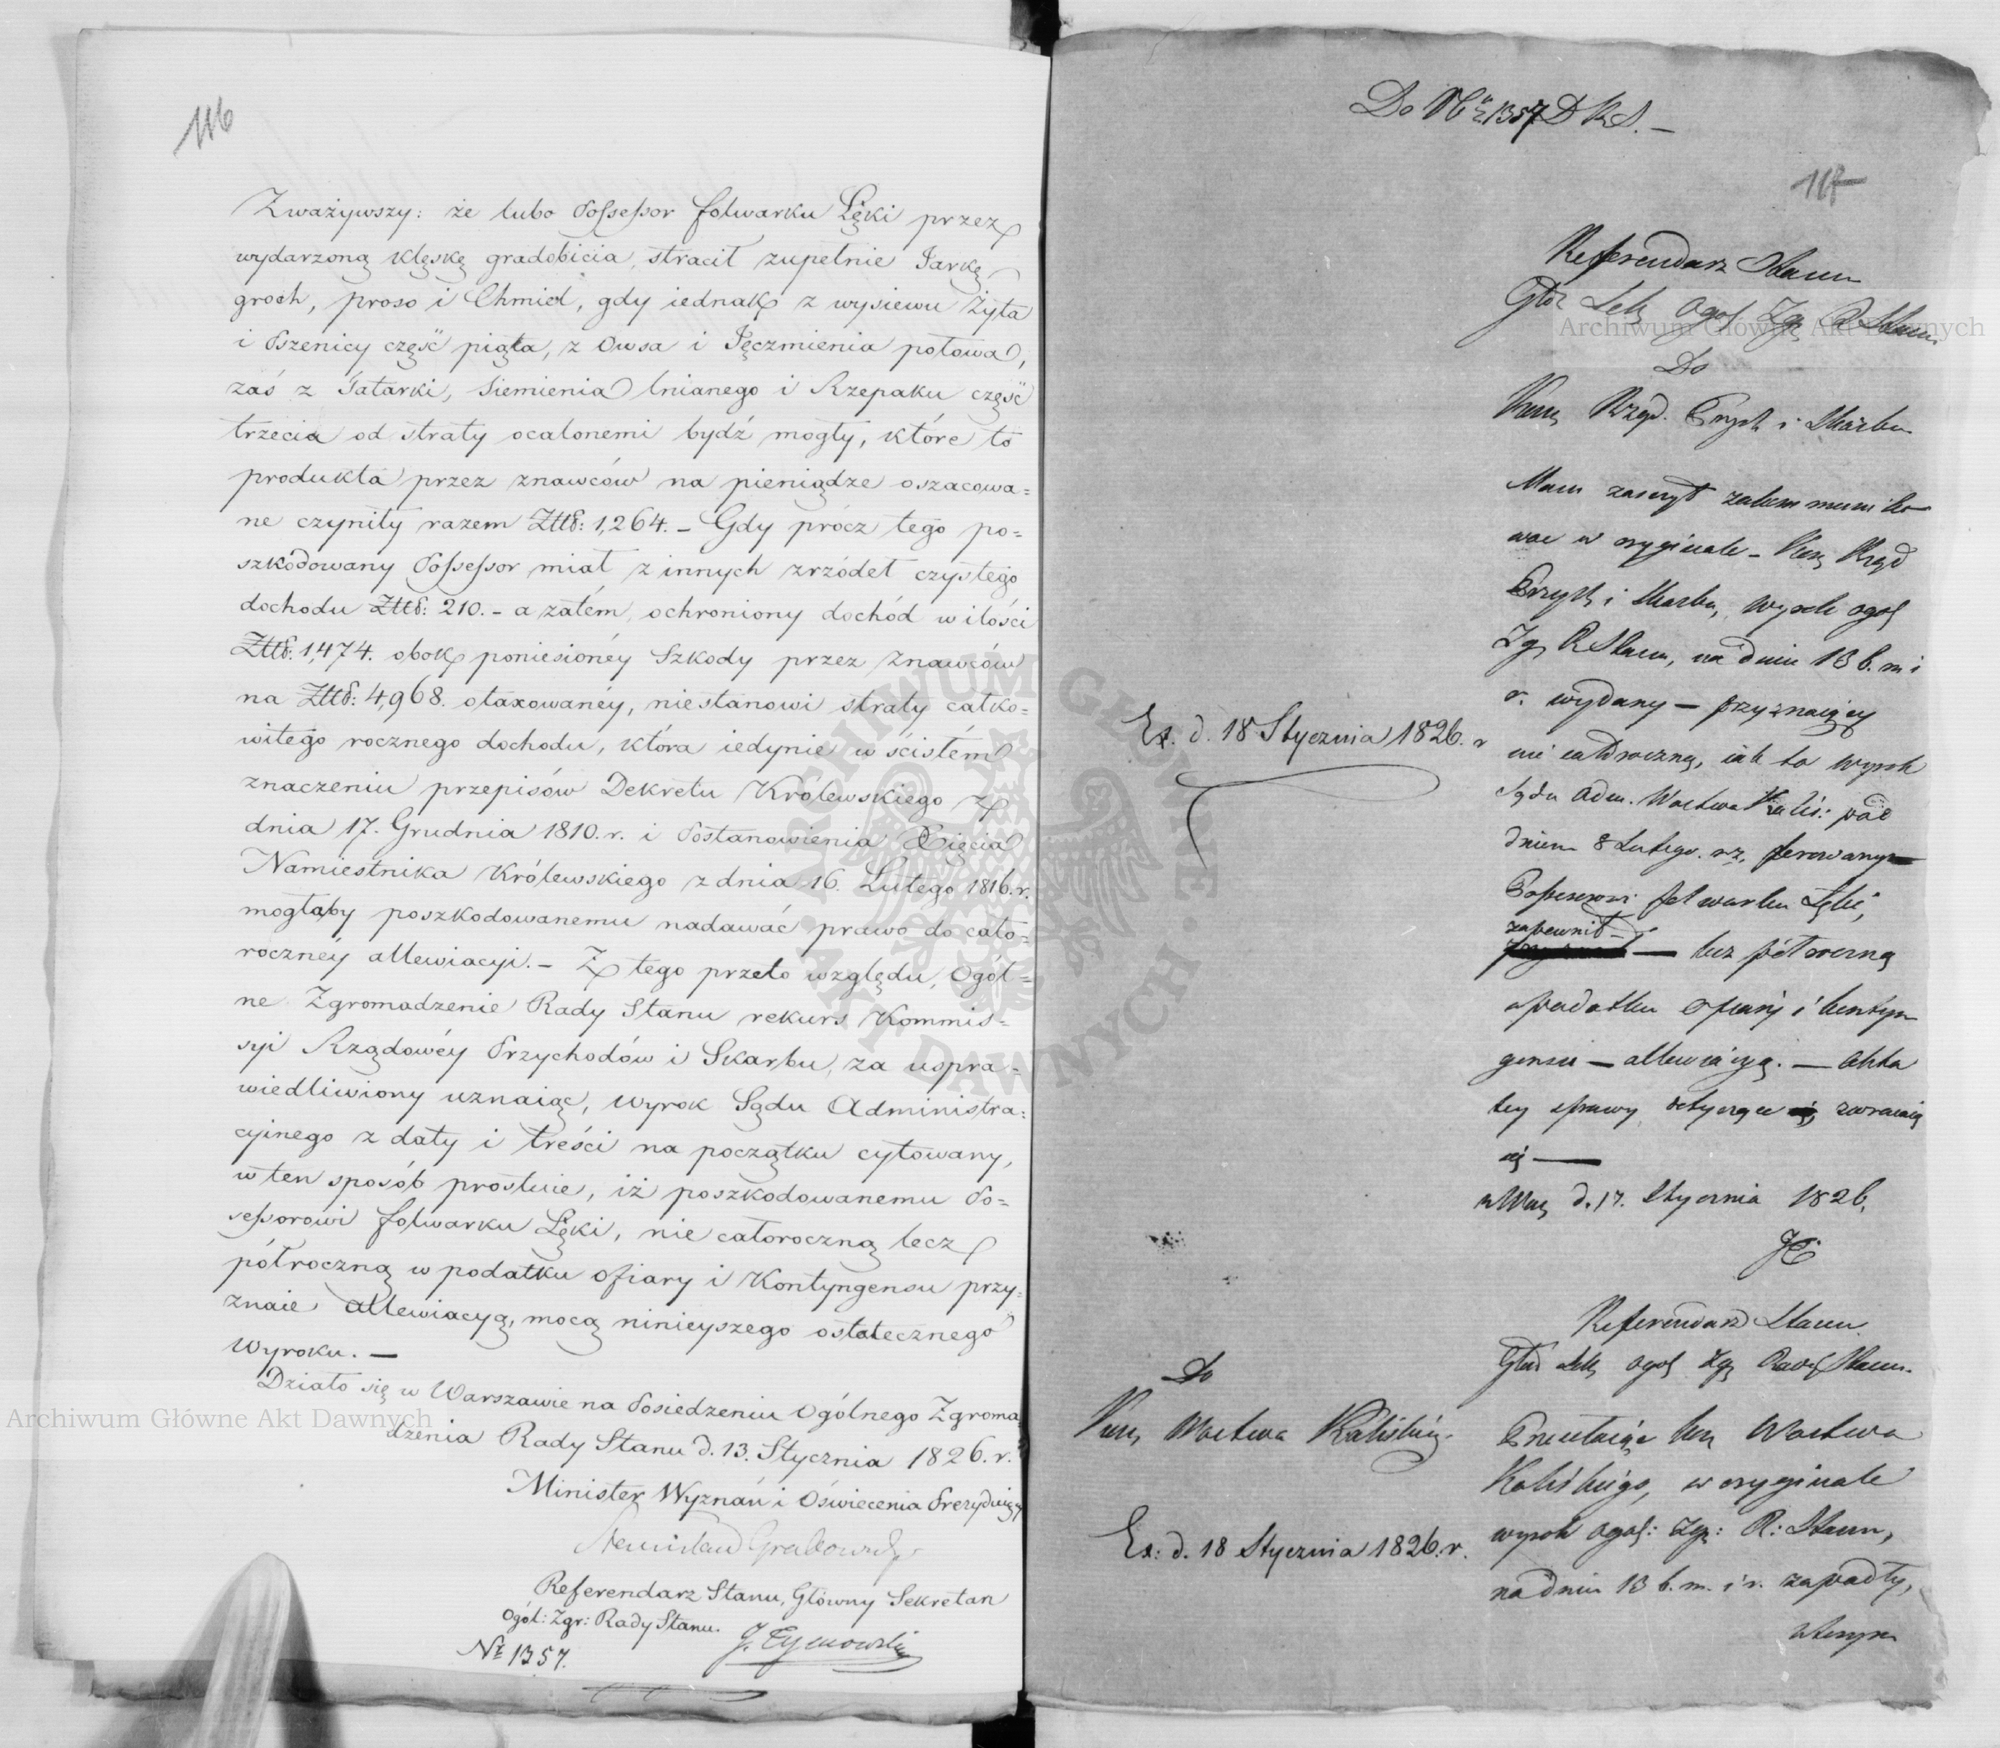 116
Zważywszy: że lubo Possessor folwarku Łęki przez
wydarzoną klęskę gradobicia, stracił zupełnie Jarkę
groch, proso i Chmiel, gdy iednak z wysiewu Żyta
i Pszenicy część piąta, z Owsa i Jęczmienia połowa,
zaś z Tatarki, Siemienia lnianego i Rzepaku część
trzecia od straty ocalonemi bydź mogły, które to
produkta przez znawców na pieniądze oszacowa=
ne czyniły razem Złtt: 1,264. – Gdy prócz tego po=
szkodowany Possessor miał z innych zrzódeł czystego
dochodu Złtt: 210. – a zatém, ochroniony dochód w ilości
Złtt: 1,474. obok poniesionéy Szkody przez Znawców
na Złtt: 4,968. otaxowanéy, niestanowi straty całko=
witego rocznego dochodu, która iedynie w ścisłém
znaczeniu przepisów Dekretu Królewskiego z
dnia 17. Grudnia 1810. r. i Postanowienia Xięcia
Namiestnika Królewskiego z dnia 16. Lutego 1816. r.
mogłaby poszkodowanemu nadawać prawo do cało=
rocznéy allewiacyi. – Z tego przeto względu, Ogól=
ne Zgromadzenie Rady Stanu rekurs Kommis=
syi Rządowéy Przychodów i Skarbu, za uspra=
wiedliwiony uznaiąc, Wyrok Sądu Administra=
cyinego z daty i treści na początku cytowany,
w ten sposób prostuie, iż poszkodowanemu Po=
sessorowi folwarku Łęki, nie całoroczną lecz
półroczną w podatku ofiary i Kontyngensu przy=
znaie allewiacyą, mocą ninieyszego ostatecznego
Wyroku. –
Działo się w Warszawie na Posiedzeniu Ogólnego Zgroma
dzenia Rady Stanu d. 13. Stycznia 1826. r.
Minister Wyznań i Oświecenia Prezyduiący
Stanisław Grabowski
Referendarz Stanu, Główny Sekretarz
Ogól: Zgr: Rady Stanu.
J. Tymowski
Nr 1357.
Do Nru 1357 D R S. –
Referendarz Stanu
Głó Sek Ogol Zg R Stanu
Do
Kom Rząd. Przych i Skarbu
Mam zaszczyt zakommuniko
wać w oryginale – Kom Rząd
Przych i Skarbu, wyrok ogol
Zg R Stanu, na dniu 13 b. m i
r. wydany – przyznaiący
nie całoroczną, iak to wyrok
Sądu Adm. Woztwa Kalis: pod
dniem 8 Lutego. r. z. ferowanym
Possessorowi folwarku Łęki,
zapewnił –
– lecz półroczną
w podatku ofiary i kontyn
gensu – allewiacyą. – Akta
tey sprawy dotyczące zwracaią
się –
w War d. 17. Stycznia 1826.
Ex. d. 18 Stycznia 1826. r
Referendarz Stanu
Głó Sek Ogol Zg Rady Stanu.
Do
Kom Woztwa Kaliskieg.
Przesełaiąc Kom Woztwa
Kaliskiego, w oryginale
wyrok ogol: Zg: R: Stanu,
na dniu 13 b. m. i r. zapadły,
Ex: d. 18 Stycznia 1826. r.
Archiwum Główne Akt Dawnych
Archiwum Główne Akt Dawnych
ARCHIWUM GŁÓWNE AKT DAWNYCH